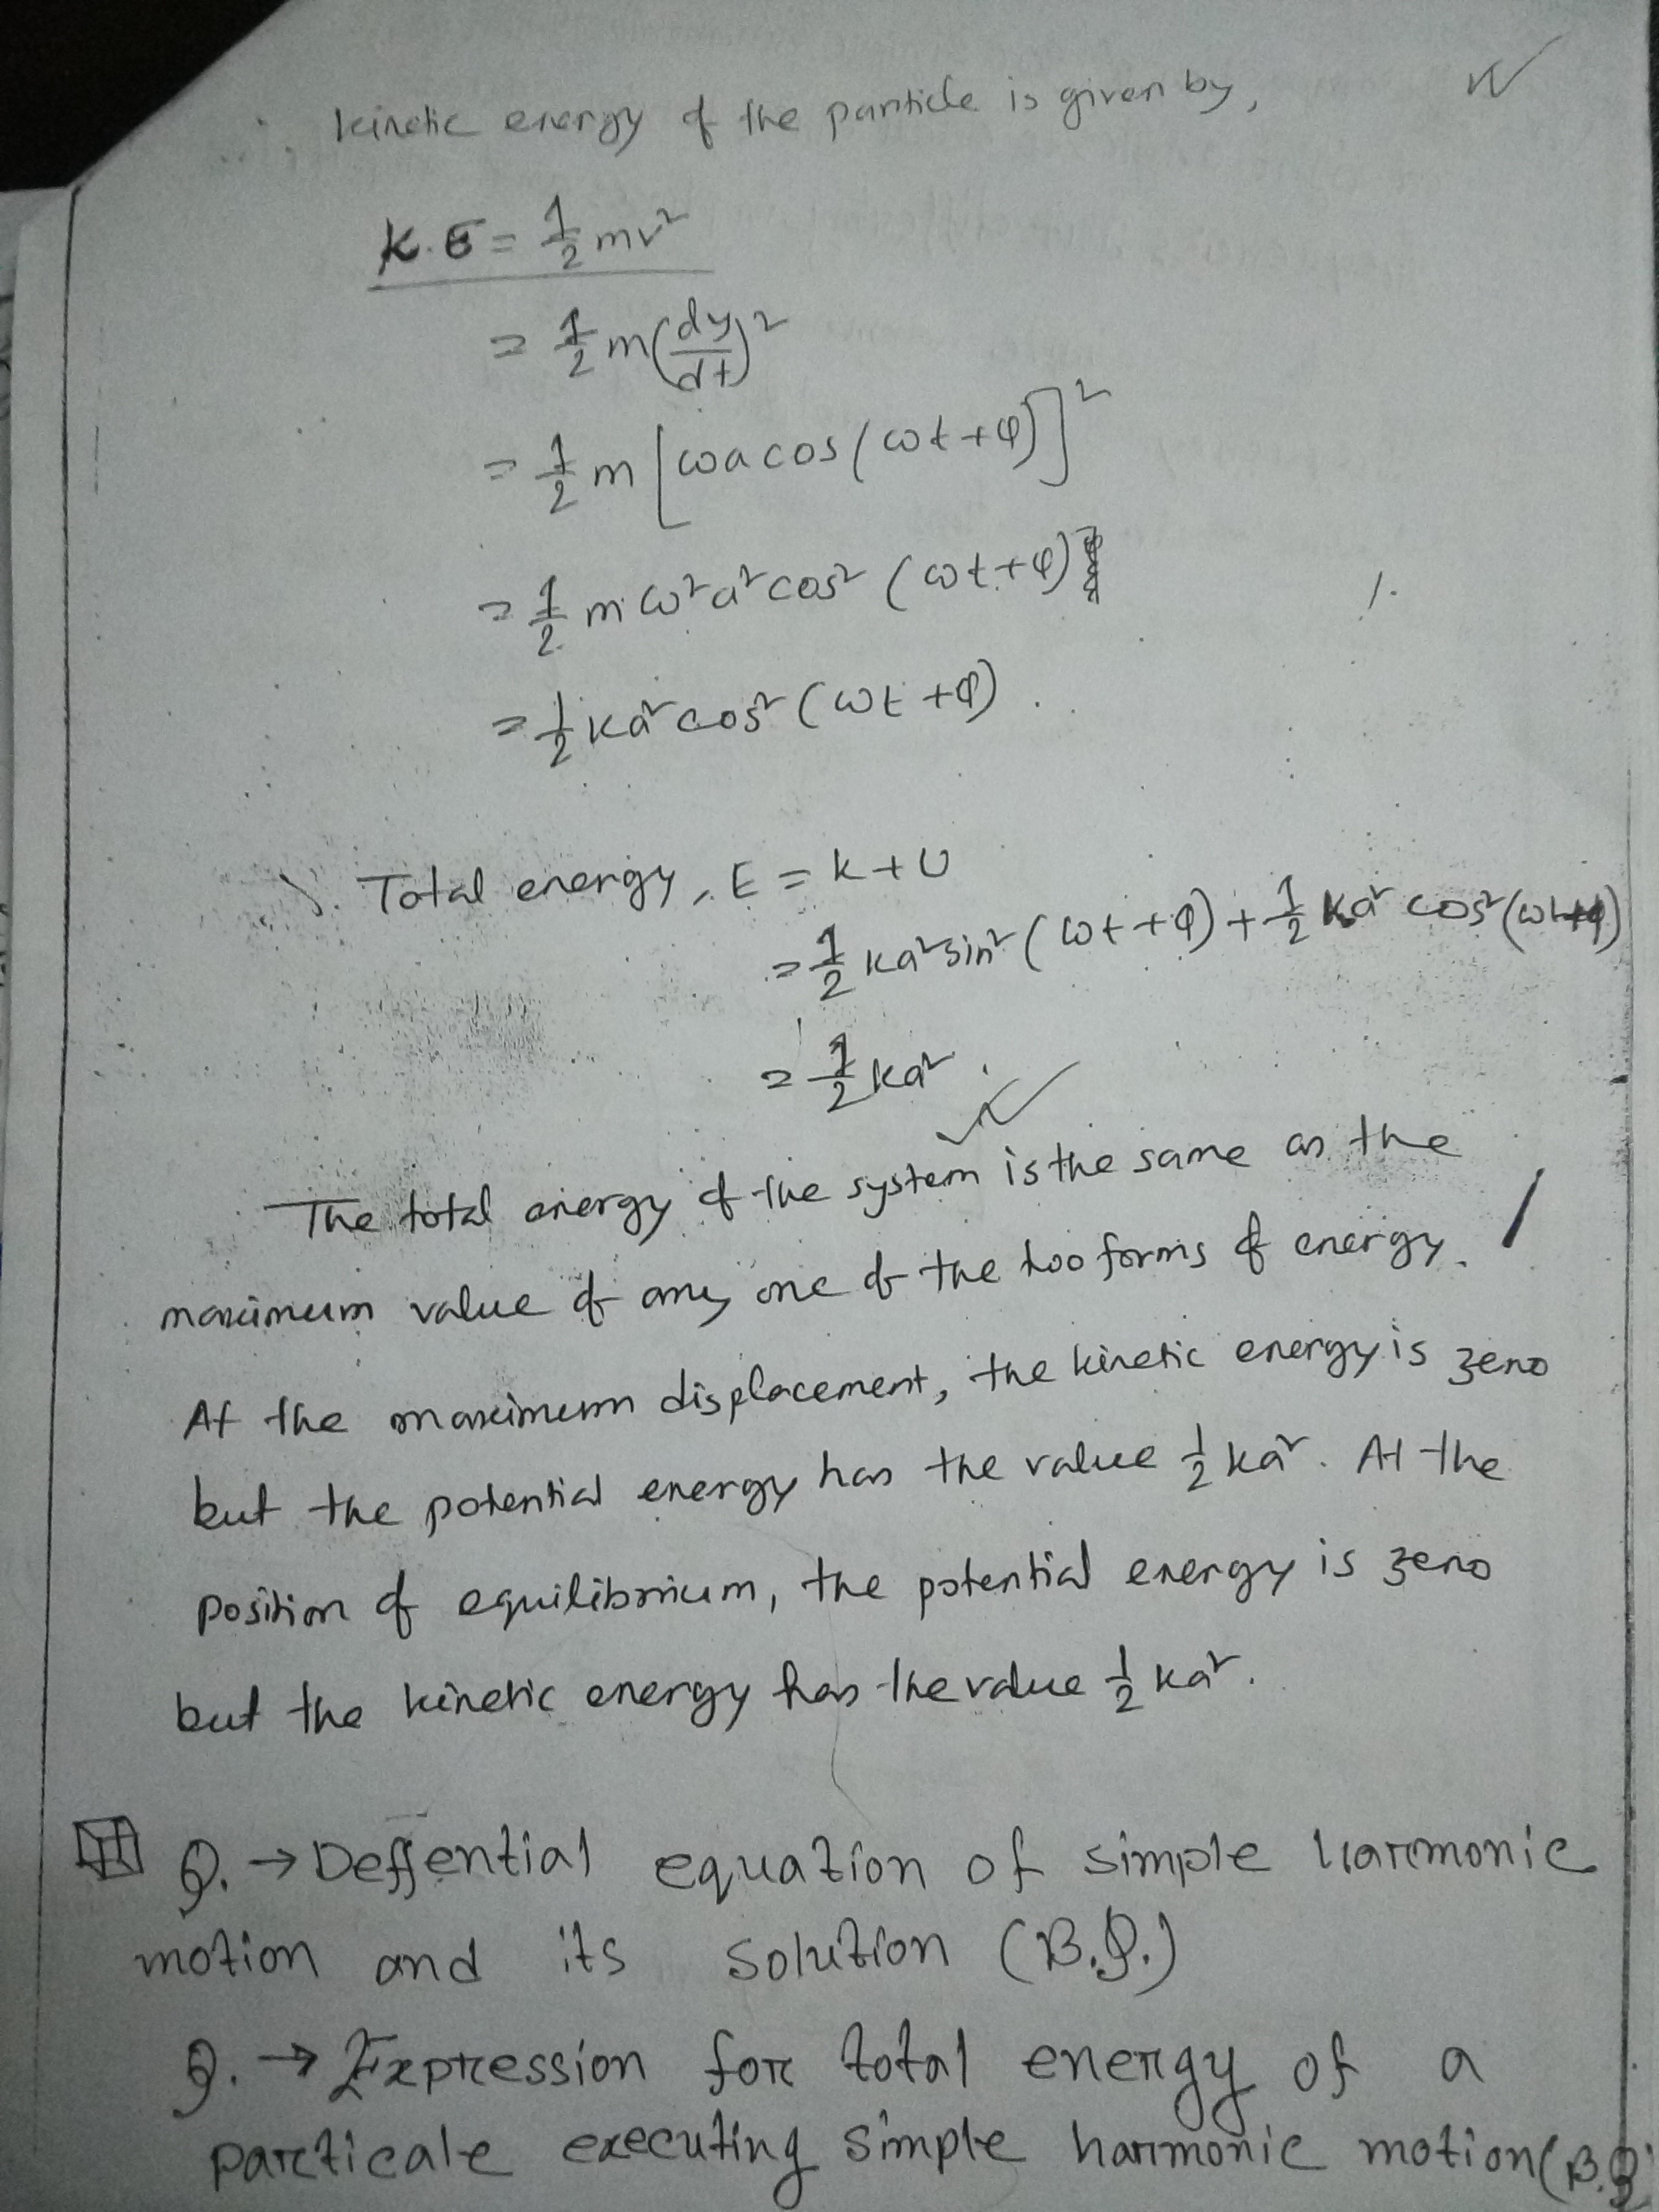 ∴ kinetic energy of the particle is given by,
K.E = 1/2 mv²
= 1/2 m(dy/dt)²
= 1/2 m [ωa cos(ωt+φ)]²
= 1/2 m ω²a² cos² (ωt+φ)
= 1/2 ka² cos² (ωt+φ).
∴ Total energy, E = K+U
= 1/2 ka² sin² (ωt+φ) + 1/2 ka² cos² (ωt+φ)
= 1/2 ka².
The total energy of the system is the same as the
maximum value of any one of the two forms of energy.
At the maximum displacement, the kinetic energy is zero
but the potential energy has the value 1/2 ka². At the
position of equilibrium, the potential energy is zero
but the kinetic energy has the value 1/2 ka².
Q. → Deffential equation of simple harmonic
motion and its solution (B.Q.)
Q. → Expression for total energy of a
particale executing simple harmonic motion (B.Q.